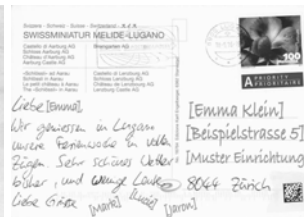 Svizzera - Schweiz - Suisse - Switzerland
SWISSMINIATUR MELIDE-LUGANO
Castello di Aarburg AG
Schloss Aarburg AG
Château d'Aarburg AG
Aarburg Castle AG
Bremgarten AG
«Schlössli» in Aarau
Schlössli in Aarau
Le petit château à Aarau
The «Schlössli» in Aarau
Castello di Lenzburg AG
Schloss Lenzburg AG
Château de Lenzbourg AG
Lenzburg Castle AG
Liebe [Emma],
Wir geniessen in Lugano
unsere Ferienwoche in vollen
Zügen. Sehr schönes Wetter
bisher, und wenige Leute.
Liebe Grüsse
[Mark] [Lucia] [Jaron]
100
A PRIORITY
PRIORITAIRE
[Emma Klein]
[Beispielstrasse 5]
[Muster Einrichtung]
8044 Zürich